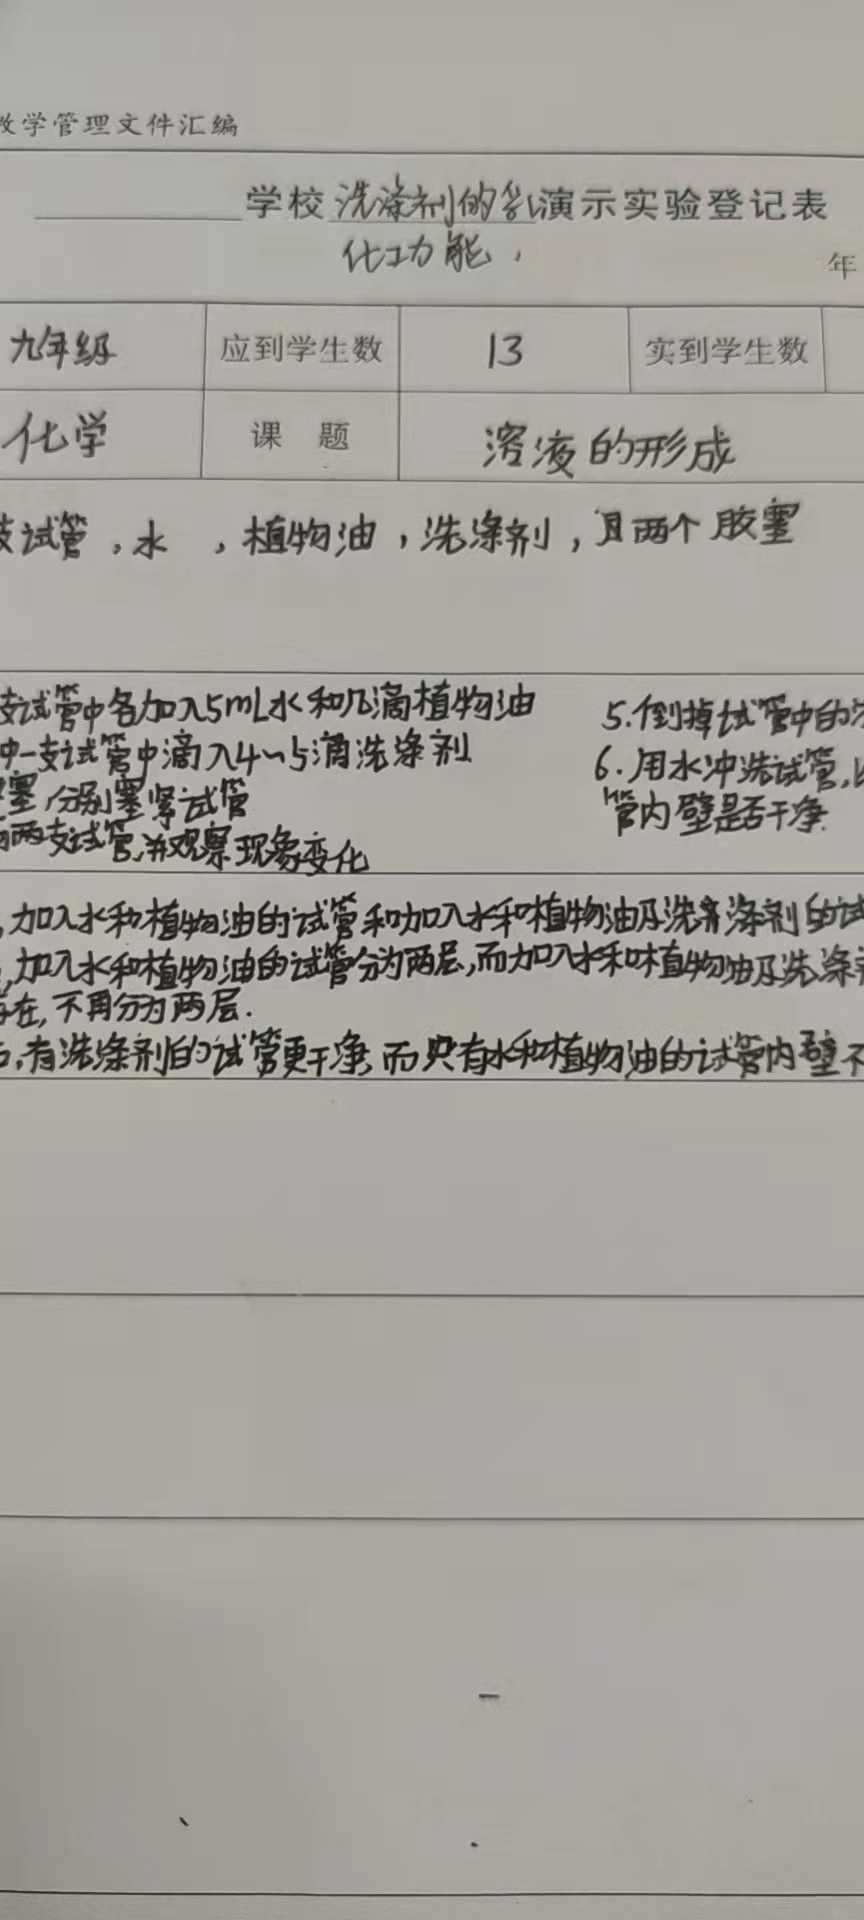 教学管理文件汇编
学校洗涤剂的乳演示实验登记表
化功能,
年
九年级 应到学生数 13 实到学生数
化学 课 题 溶液的形成
支试管,水 ,植物油,洗涤剂,且两个胶塞
支试管中各加入5mL水和几滴植物油
中一支试管中滴入4~5滴洗涤剂
塞分别塞紧试管
两支试管,并观察现象变化
5.倒掉试管中的
6.用水冲洗试管,
管内壁是否干净.
,加入水和植物油的试管和加入水和植物油及洗齐涤剂的试
,加入水和植物油的试管分为两层,而加入水和植物油及洗涤
存在,不再分为两层.
后,有洗涤剂的试管更干净,而只有水和植物油的试管内壁不